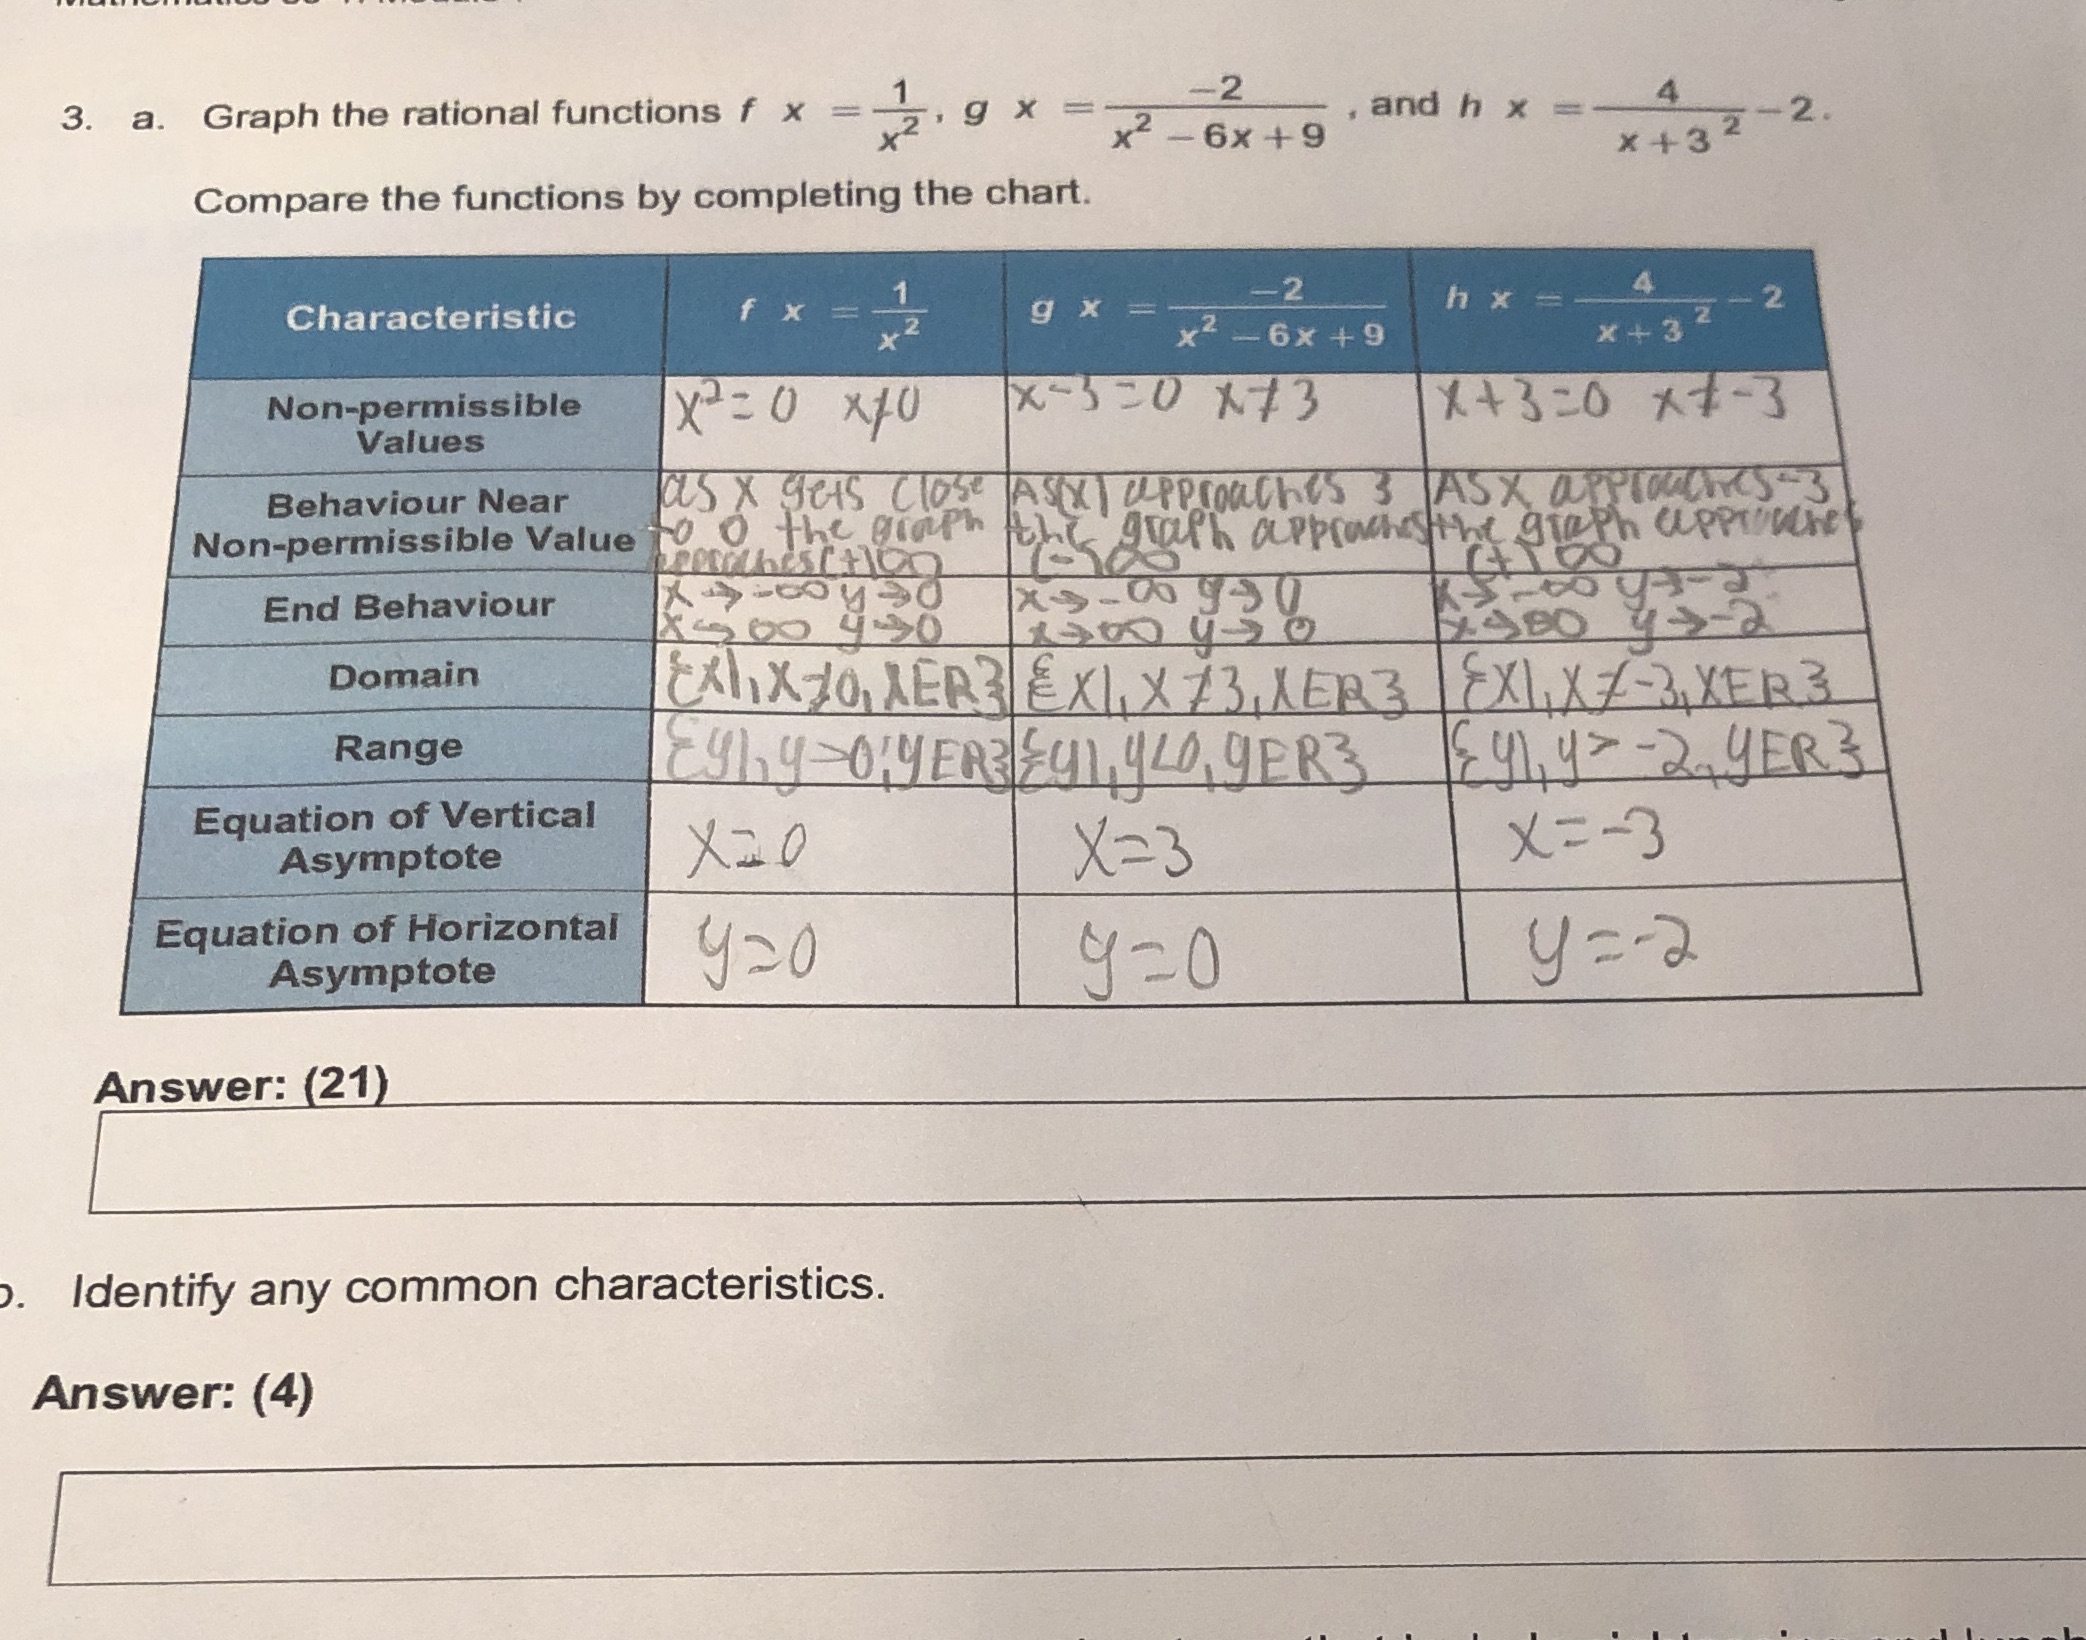 3. a. Graph the rational functions f x = 1/x², g x = -2/(x² - 6x + 9), and h x = 4/(x + 3 ²) - 2.
Compare the functions by completing the chart.
Characteristic
f x = 1/x²
g x = -2/(x² - 6x + 9)
h x = 4/(x + 3 ²) - 2
Non-permissible
Values
x² = 0 x≠0
x-3=0 x≠3
x+3=0 x≠-3
Behaviour Near
Non-permissible Value
as x gets close
to 0 the graph
approaches (+)∞
As(x) approaches 3
the graph approaches
(-)∞
As x approaches -3
the graph approaches
(+)∞
End Behaviour
x→-∞ y→0
x→∞ y→0
x→-∞ y→0
x→∞ y→0
x→-∞ y→-2
x→∞ y→-2
Domain
{x|, x≠0, xER}
{x|, x≠3, xER}
{x|, x≠-3, xER}
Range
{y|, y>0, yER}
{y|, y<0, yER}
{y|, y> -2, yER}
Equation of Vertical
Asymptote
x=0
x=3
x=-3
Equation of Horizontal
Asymptote
y=0
y=0
y=-2
Answer: (21)
b. Identify any common characteristics.
Answer: (4)